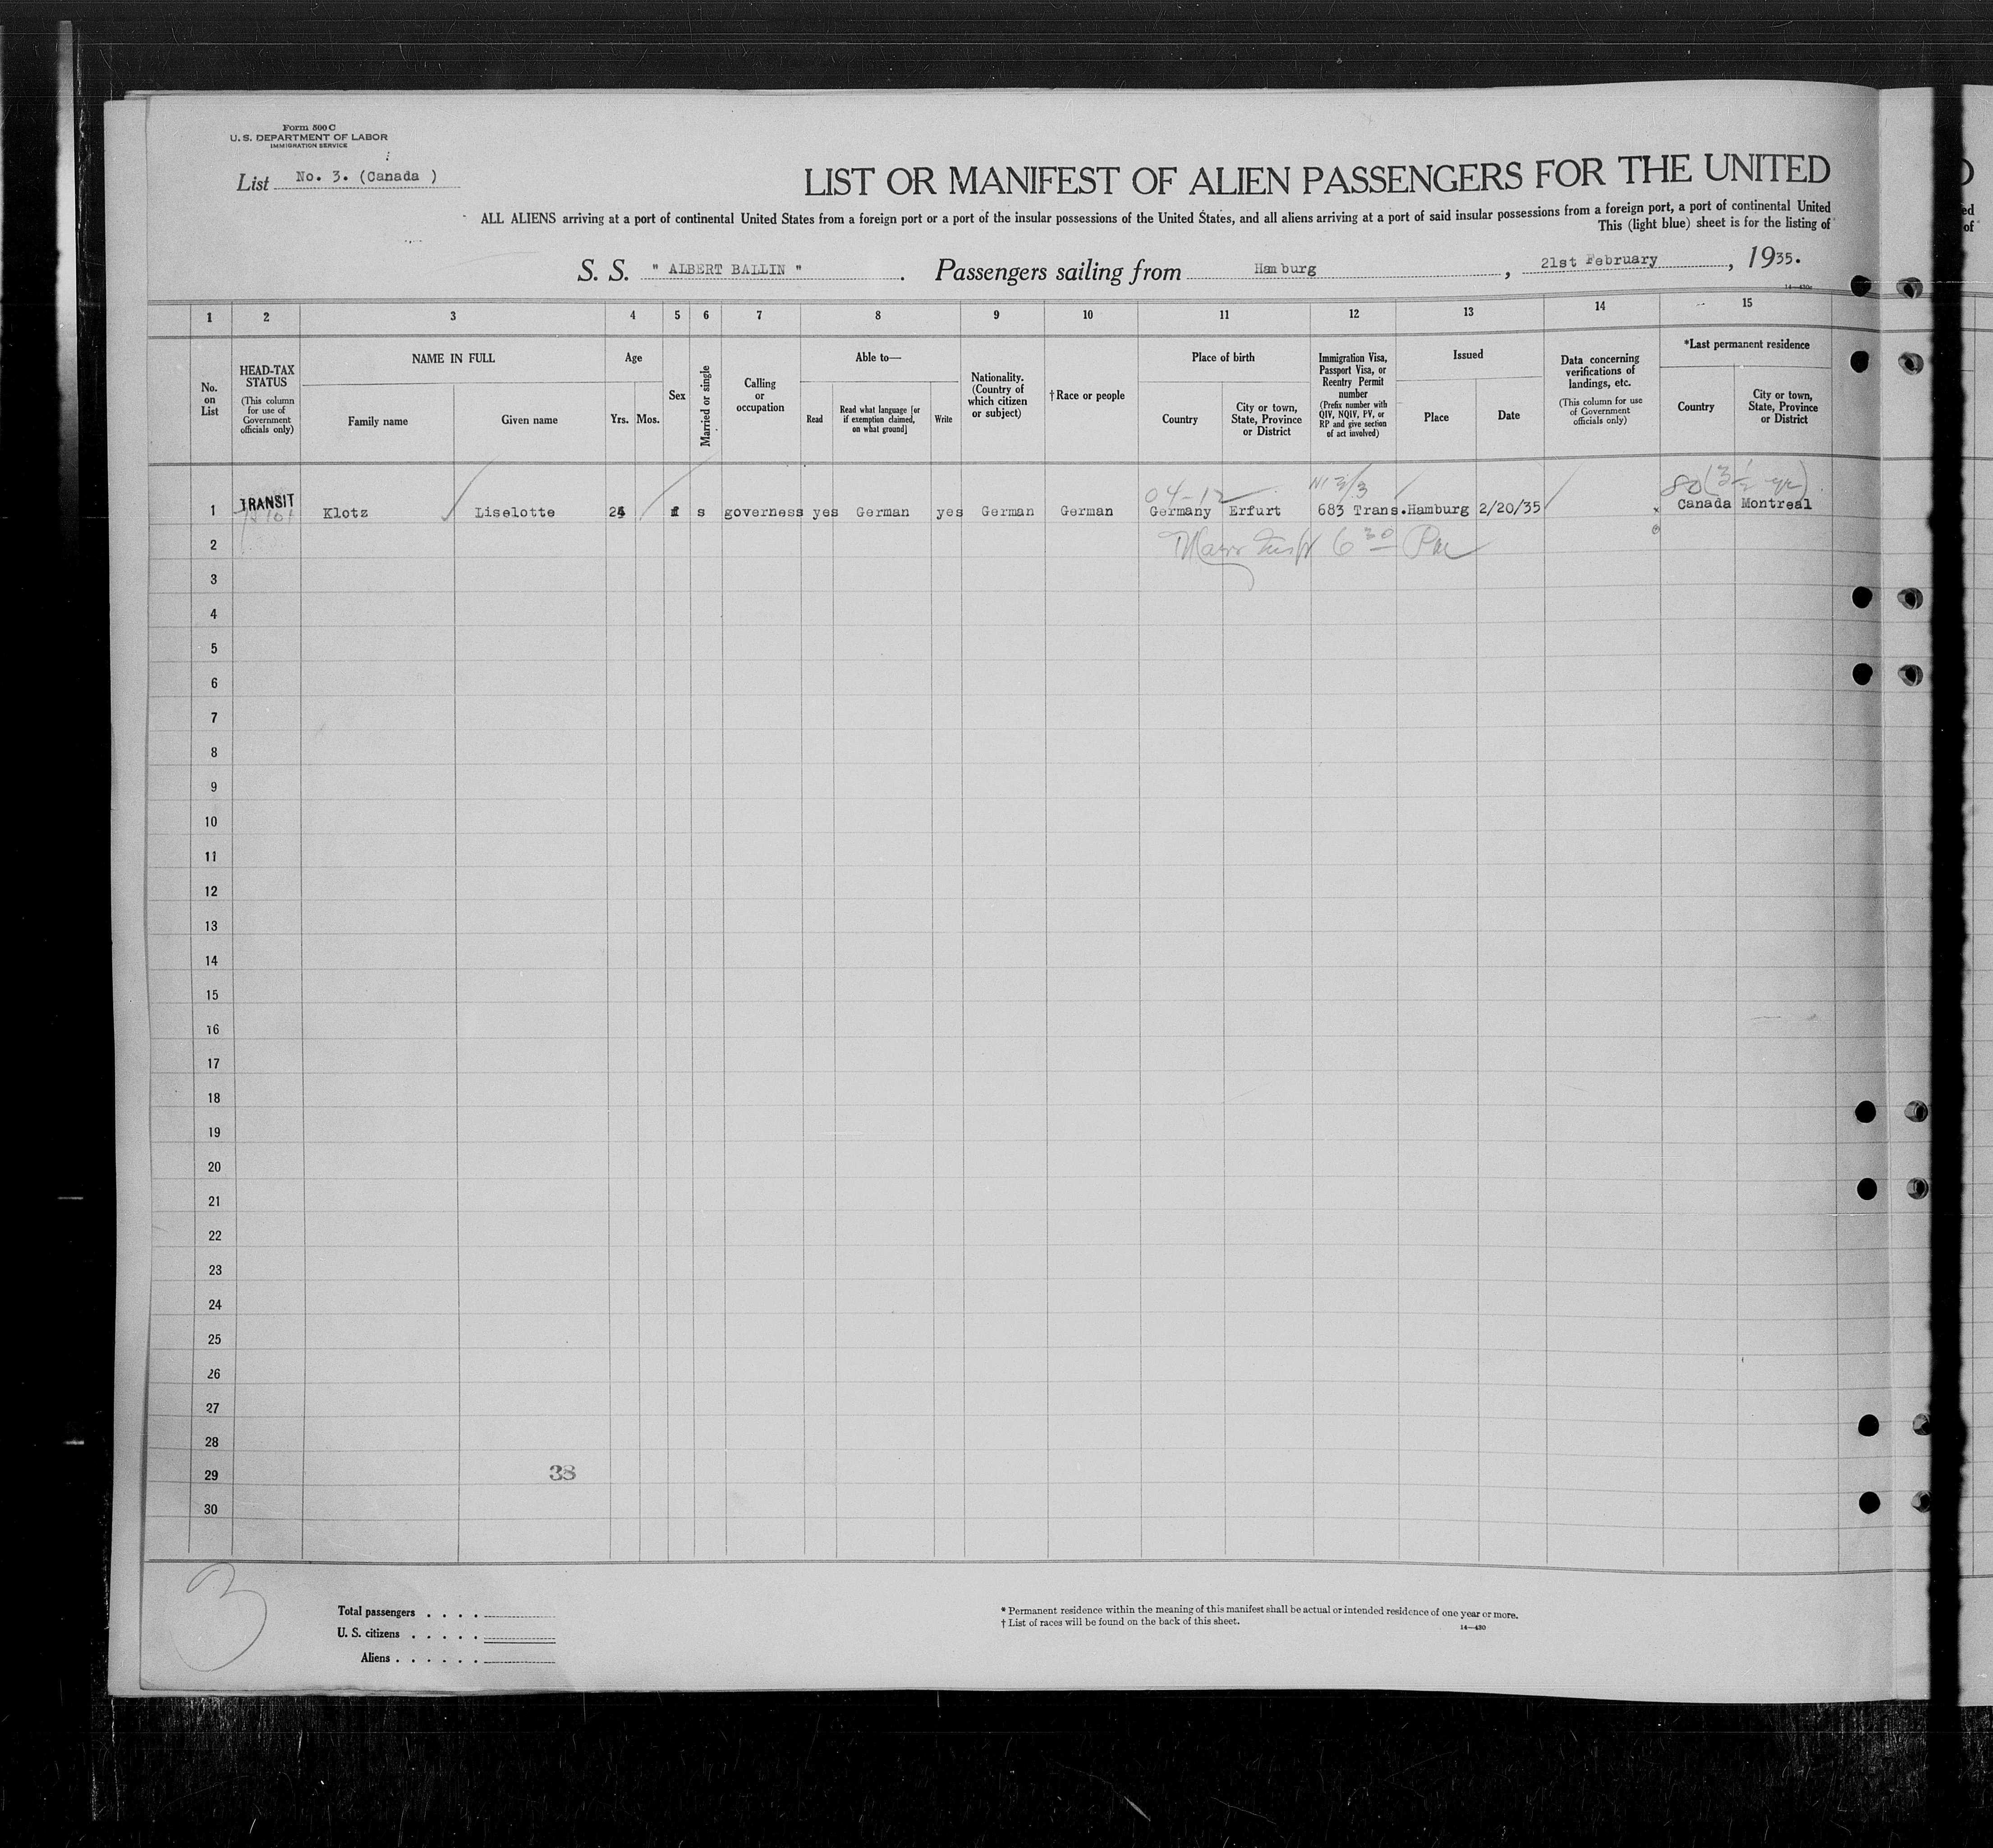 Form 500 C
U. S. DEPARTMENT OF LABOR
IMMIGRATION SERVICE
List No. 3. (Canada )
LIST OR MANIFEST OF ALIEN PASSENGERS FOR THE UNITED
ALL ALIENS arriving at a port of continental United States from a foreign port or a port of the insular possessions of the United States, and all aliens arriving at a port of said insular possessions from a foreign port, a port of continental United
This (light blue) sheet is for the listing of
S. S. " ALBERT BALLIN " . Passengers sailing from Hamburg , 21st February , 1935.
1 2 3 4 5 6 7 8 9 10 11 12 13 14 15
No. on List
HEAD-TAX STATUS
(This column for use of Government officials only)
NAME IN FULL
Family name
Given name
Age
Yrs. Mos.
Sex
Married or single
Calling or occupation
Able to—
Read
Read what language [or if exemption claimed, on what ground]
Write
Nationality. (Country of which citizen or subject)
†Race or people
Place of birth
Country
City or town, State, Province or District
Immigration Visa, Passport Visa, or Reentry Permit number
(Prefix number with QIV, NQIV, PV, or RP and give section of act involved)
Issued
Place
Date
Data concerning verifications of landings, etc.
(This column for use of Government officials only)
*Last permanent residence
Country
City or town, State, Province or District
04-12 3/3 80 (3 1/2 yr)
1 TRANSIT Klotz Liselotte f s governess yes German yes German German Germany Erfurt 683 Trans. Hamburg 2/20/35 Canada Montreal
2 6 30 Pm
3
4
5
6
7
8
9
10
11
12
13
14
15
16
17
18
19
20
21
22
23
24
25
26
27
28
29 38
30
3
Total passengers . . . .
U. S. citizens . . . . .
Aliens . . . . . .
* Permanent residence within the meaning of this manifest shall be actual or intended residence of one year or more.
† List of races will be found on the back of this sheet.
14—430